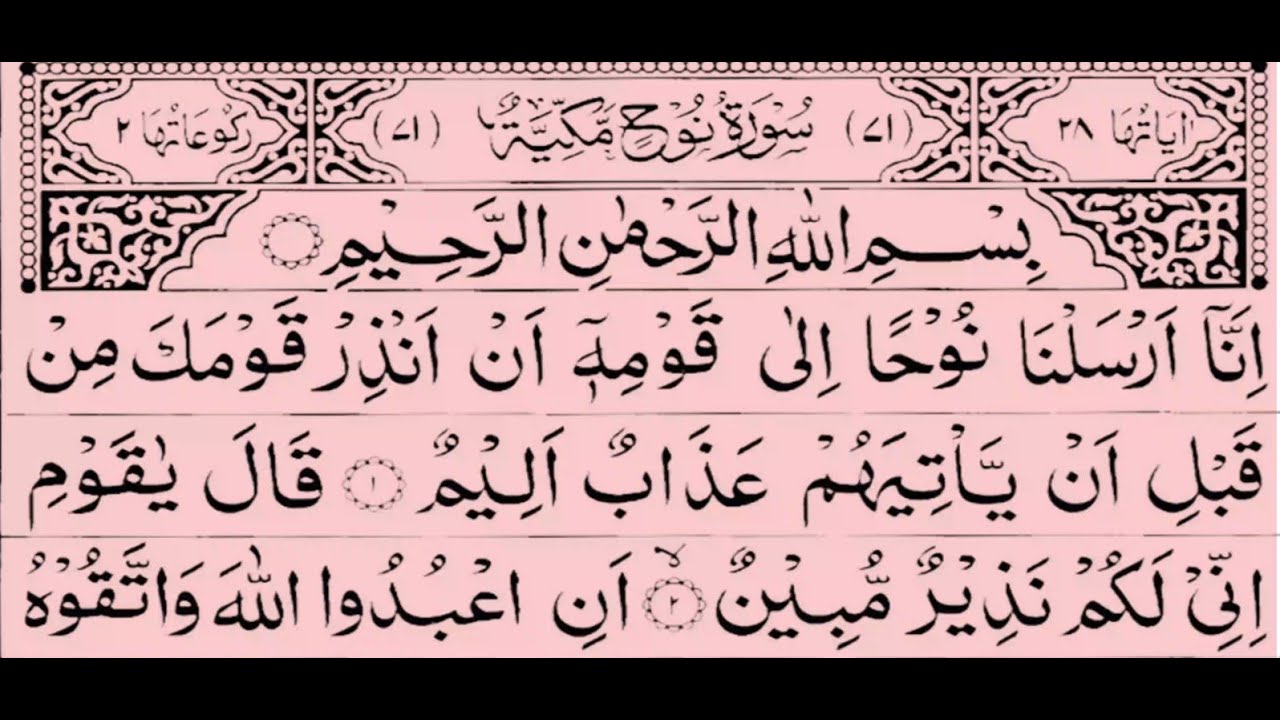 اٰيَاتُهَا ٢٨ (٧١) سُوْرَةُ نُوْحٍ مَّكِّيَّةٌ (٧١) رُكُوْعَاتُهَا ٢
بِسْمِ اللّٰهِ الرَّحْمٰنِ الرَّحِيْمِ
اِنَّاۤ اَرْسَلْنَا نُوْحًا اِلٰى قَوْمِهٖۤ اَنْ اَنْذِرْ قَوْمَكَ مِنْ
قَبْلِ اَنْ يَّاْتِيَهُمْ عَذَابٌ اَلِيْمٌ ١ قَالَ يٰقَوْمِ
اِنِّيْ لَكُمْ نَذِيْرٌ مُّبِيْنٌ ٢ ۙ اَنِ اعْبُدُوا اللّٰهَ وَاتَّقُوْهُ